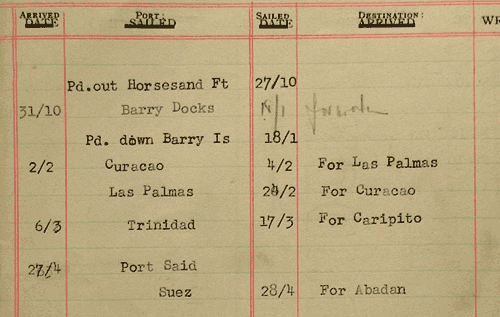 ARRIVED DATE PORT: SAILED SAILED DATE DESTINATION: ARRIVED WR
Pd.out Horsesand Ft 27/10
31/10 Barry Docks
Pd. down Barry Is 18/1
2/2 Curacao 4/2 For Las Palmas
Las Palmas 24/2 For Curacao
6/3 Trinidad 17/3 For Caripito
27/4 Port Said
Suez 28/4 For Abadan